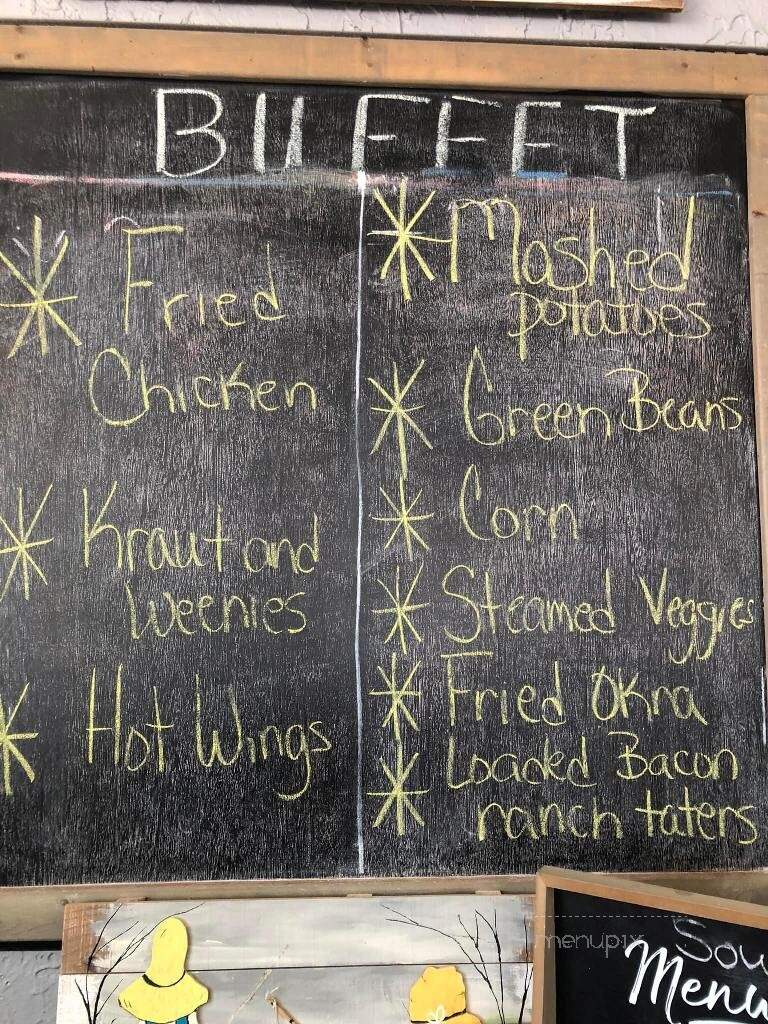 BUFFET
* Fried
Chicken
* Kraut and
Weenies
* Hot Wings
* Mashed
potatoes
* Green Beans
* Corn
* Steamed Veggies
* Fried Okra
* Loaded Bacon
ranch taters
menupix
Menu